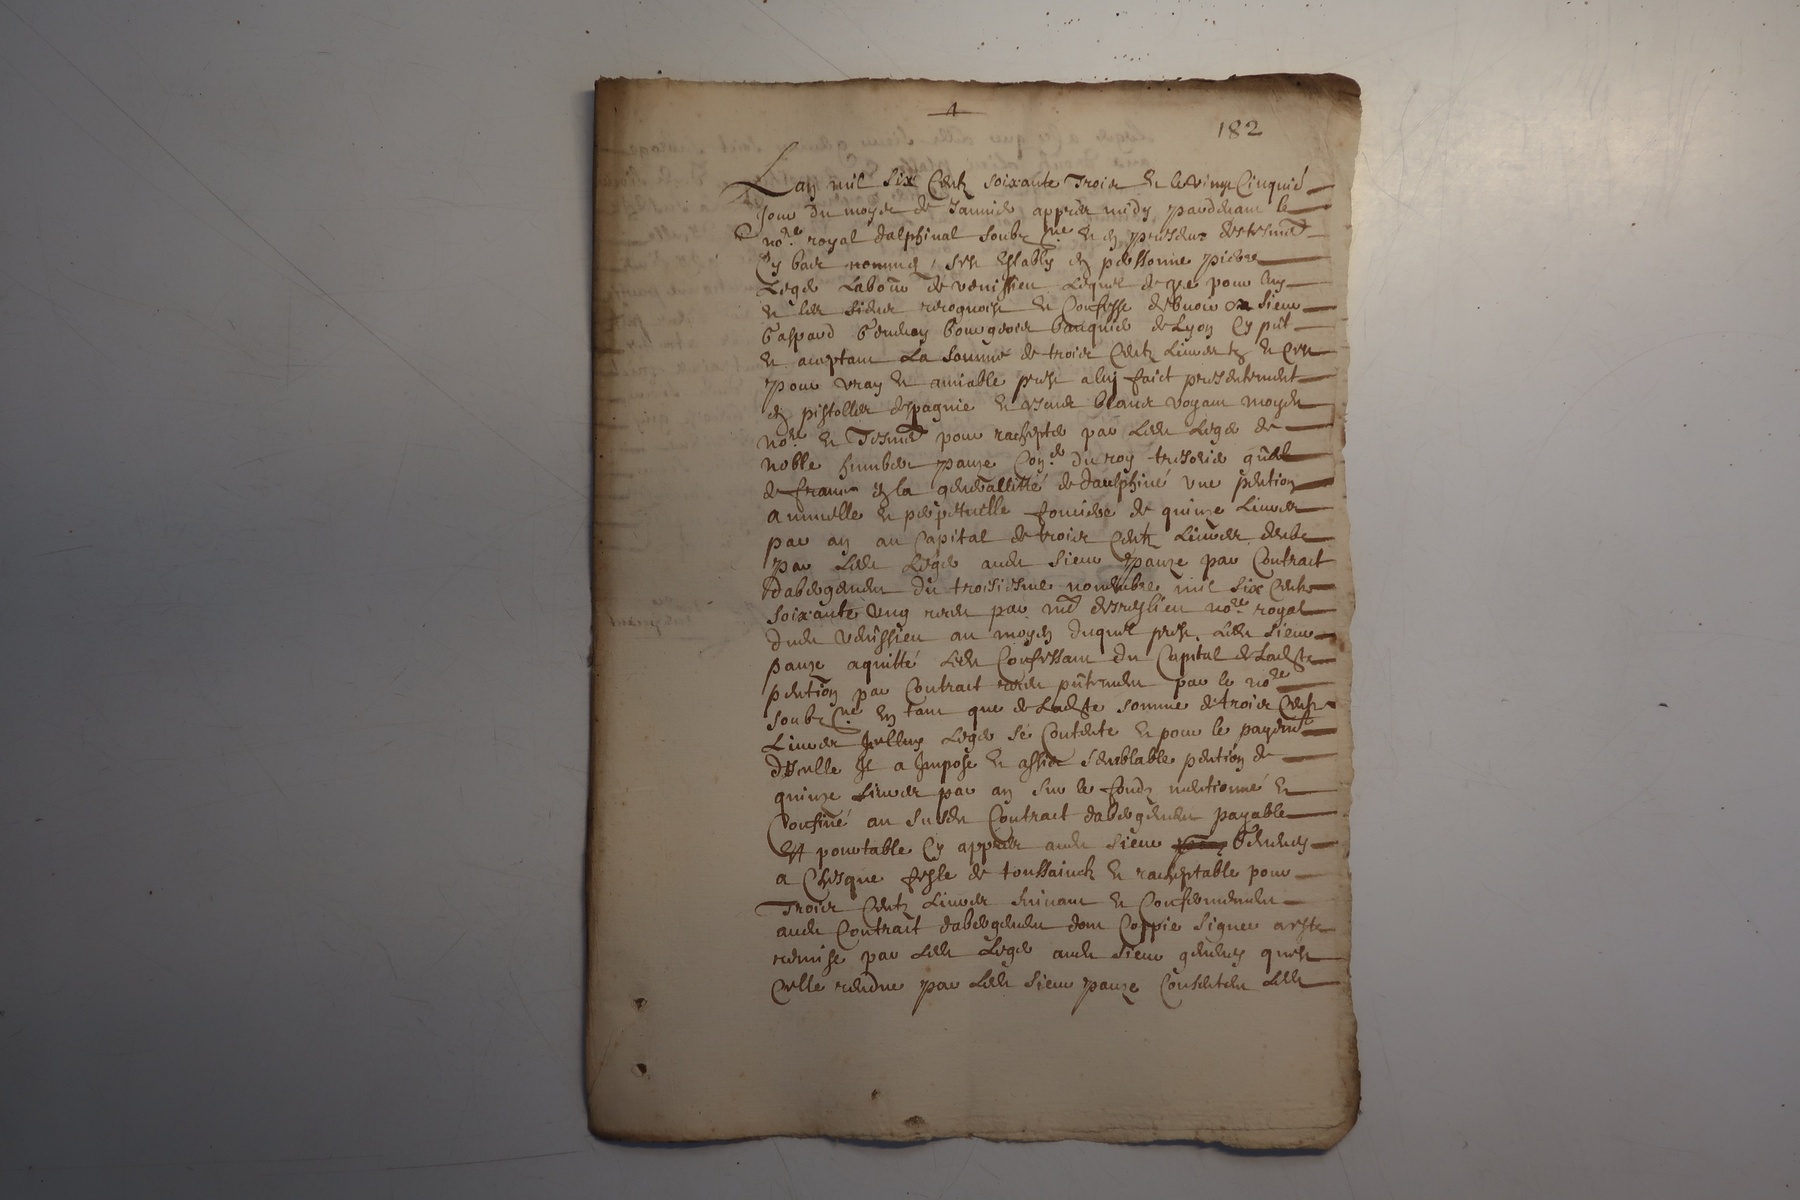 182
Lan mil six Centz soixante Trois et le vingt Cinquie
Jour du moys de Janvier apprès midy pardevant le
nore royal dalphinal soubzne et en presence des tesmd
Cy bas nommez, sest estably en personne pierre
Leger Labour de venissieu Lequel de gre pour luy
et les siens recognoist et Confesse debvoir au sieur
Gaspard bourgeois banquier de Lyon Cy pnt
et aceptant La somme de trois Centz Livres tz et Cest
pour vray et amiable prest a luy faict presentement
en pistolles despagnie et escus blancs voyant moyd
nore et Tesmd pour rachepter par Ledt Leger de
noble humbert panze Coner du roy tresorier gnal
de france en la generallitté de daulphiné une pention
annuelle et perpetuelle fonciere de quinze Livres
par an au Capital de trois Centz Livres deube
par Ledt Leger audt sieur panze par Contract
dabergement du troisiesme novembre mil six Centz
soixante ung receu par me nore royal
dudt venissieu au moyen duquel prest Ledt sieur
panze aquitté Ledt Confessant du Capital de Ladte
pention par Contract receu pntement par le nore
soubzne en tant que de Ladte somme de trois Centz
Livres Leger se Contente et pour le payemt
dicelle Il a Impose et assis semblable pention de
quinze Livres par an sur le fondz mentionné et
Confiné au susdt Contract dabergement payable
et pourtable Cy apprès audt sieur
a Chesque feste de toussainctz et racheptable pour
Trois Centz Livres suivant et Conformement
audt Contrait dabergement dont Coppie signee a este
remise par Ledt Leger audt sieur quest
Celle rendue par Ledt sieur panze Consentent Ledt